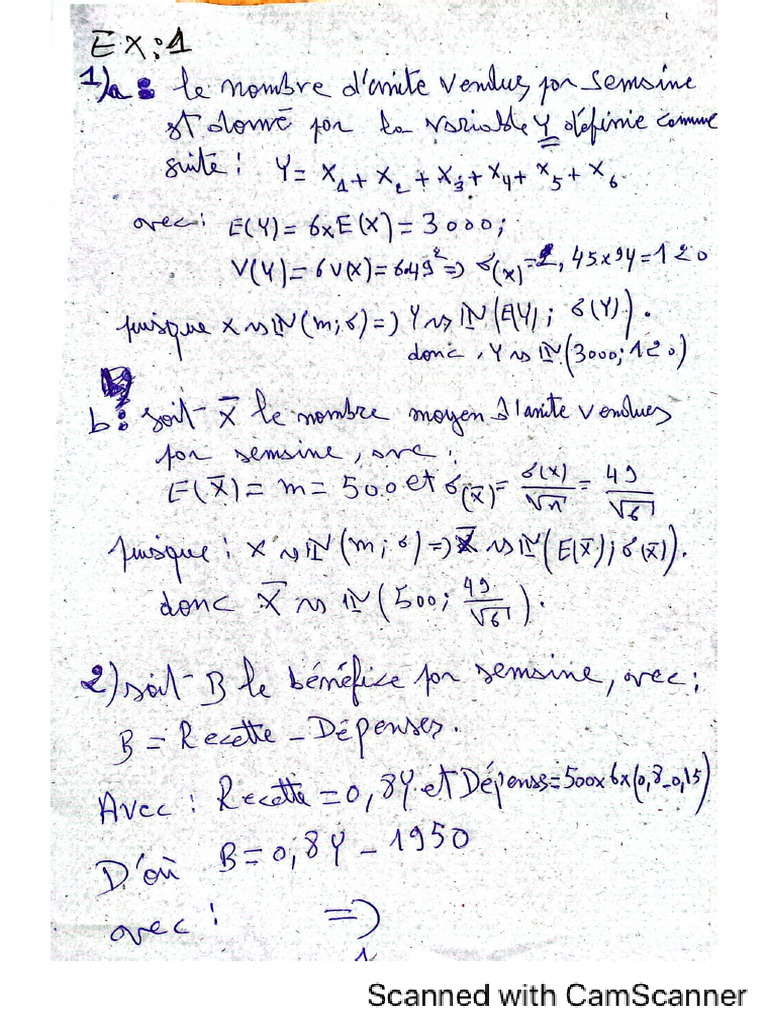 EX:1
1)a: le nombre d'unite vendus par semaine
est donné par la variable Y définie comme
suite: Y= X1 + X2 + X3 + X4 + X5 + X6
avec: E(Y)= 6xE(X) = 3000;
V(Y)=6V(X)=6.49² => σ(x)=2,45x94=120
puisque X ~> IN(m;σ) => Y ~> IN(E(Y); σ(Y)).
donc, Y ~> IN(3000;120)
b: soit X̄ le nombre moyen d'unite vendues
par semaine, avec:
E(X̄) = m = 500 et σ(X̄) = σ(X)/√n = 49/√6
puisque: X ~> IN(m;σ) => X̄ ~> IN(E(X̄);σ(X̄)).
donc X̄ ~> IN(500; 49/√6).
2) soit B le bénéfice par semaine, avec:
B = Recette - Dépenses.
Avec: Recette = 0,8Y et Dépenses=500x6x(0,8-0,15)
D'où B = 0,8Y - 1950
avec: =>
1
Scanned with CamScanner